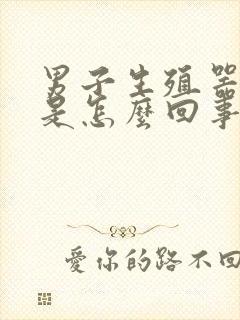 男子生殖器
是怎麼回事
愛你的路不回